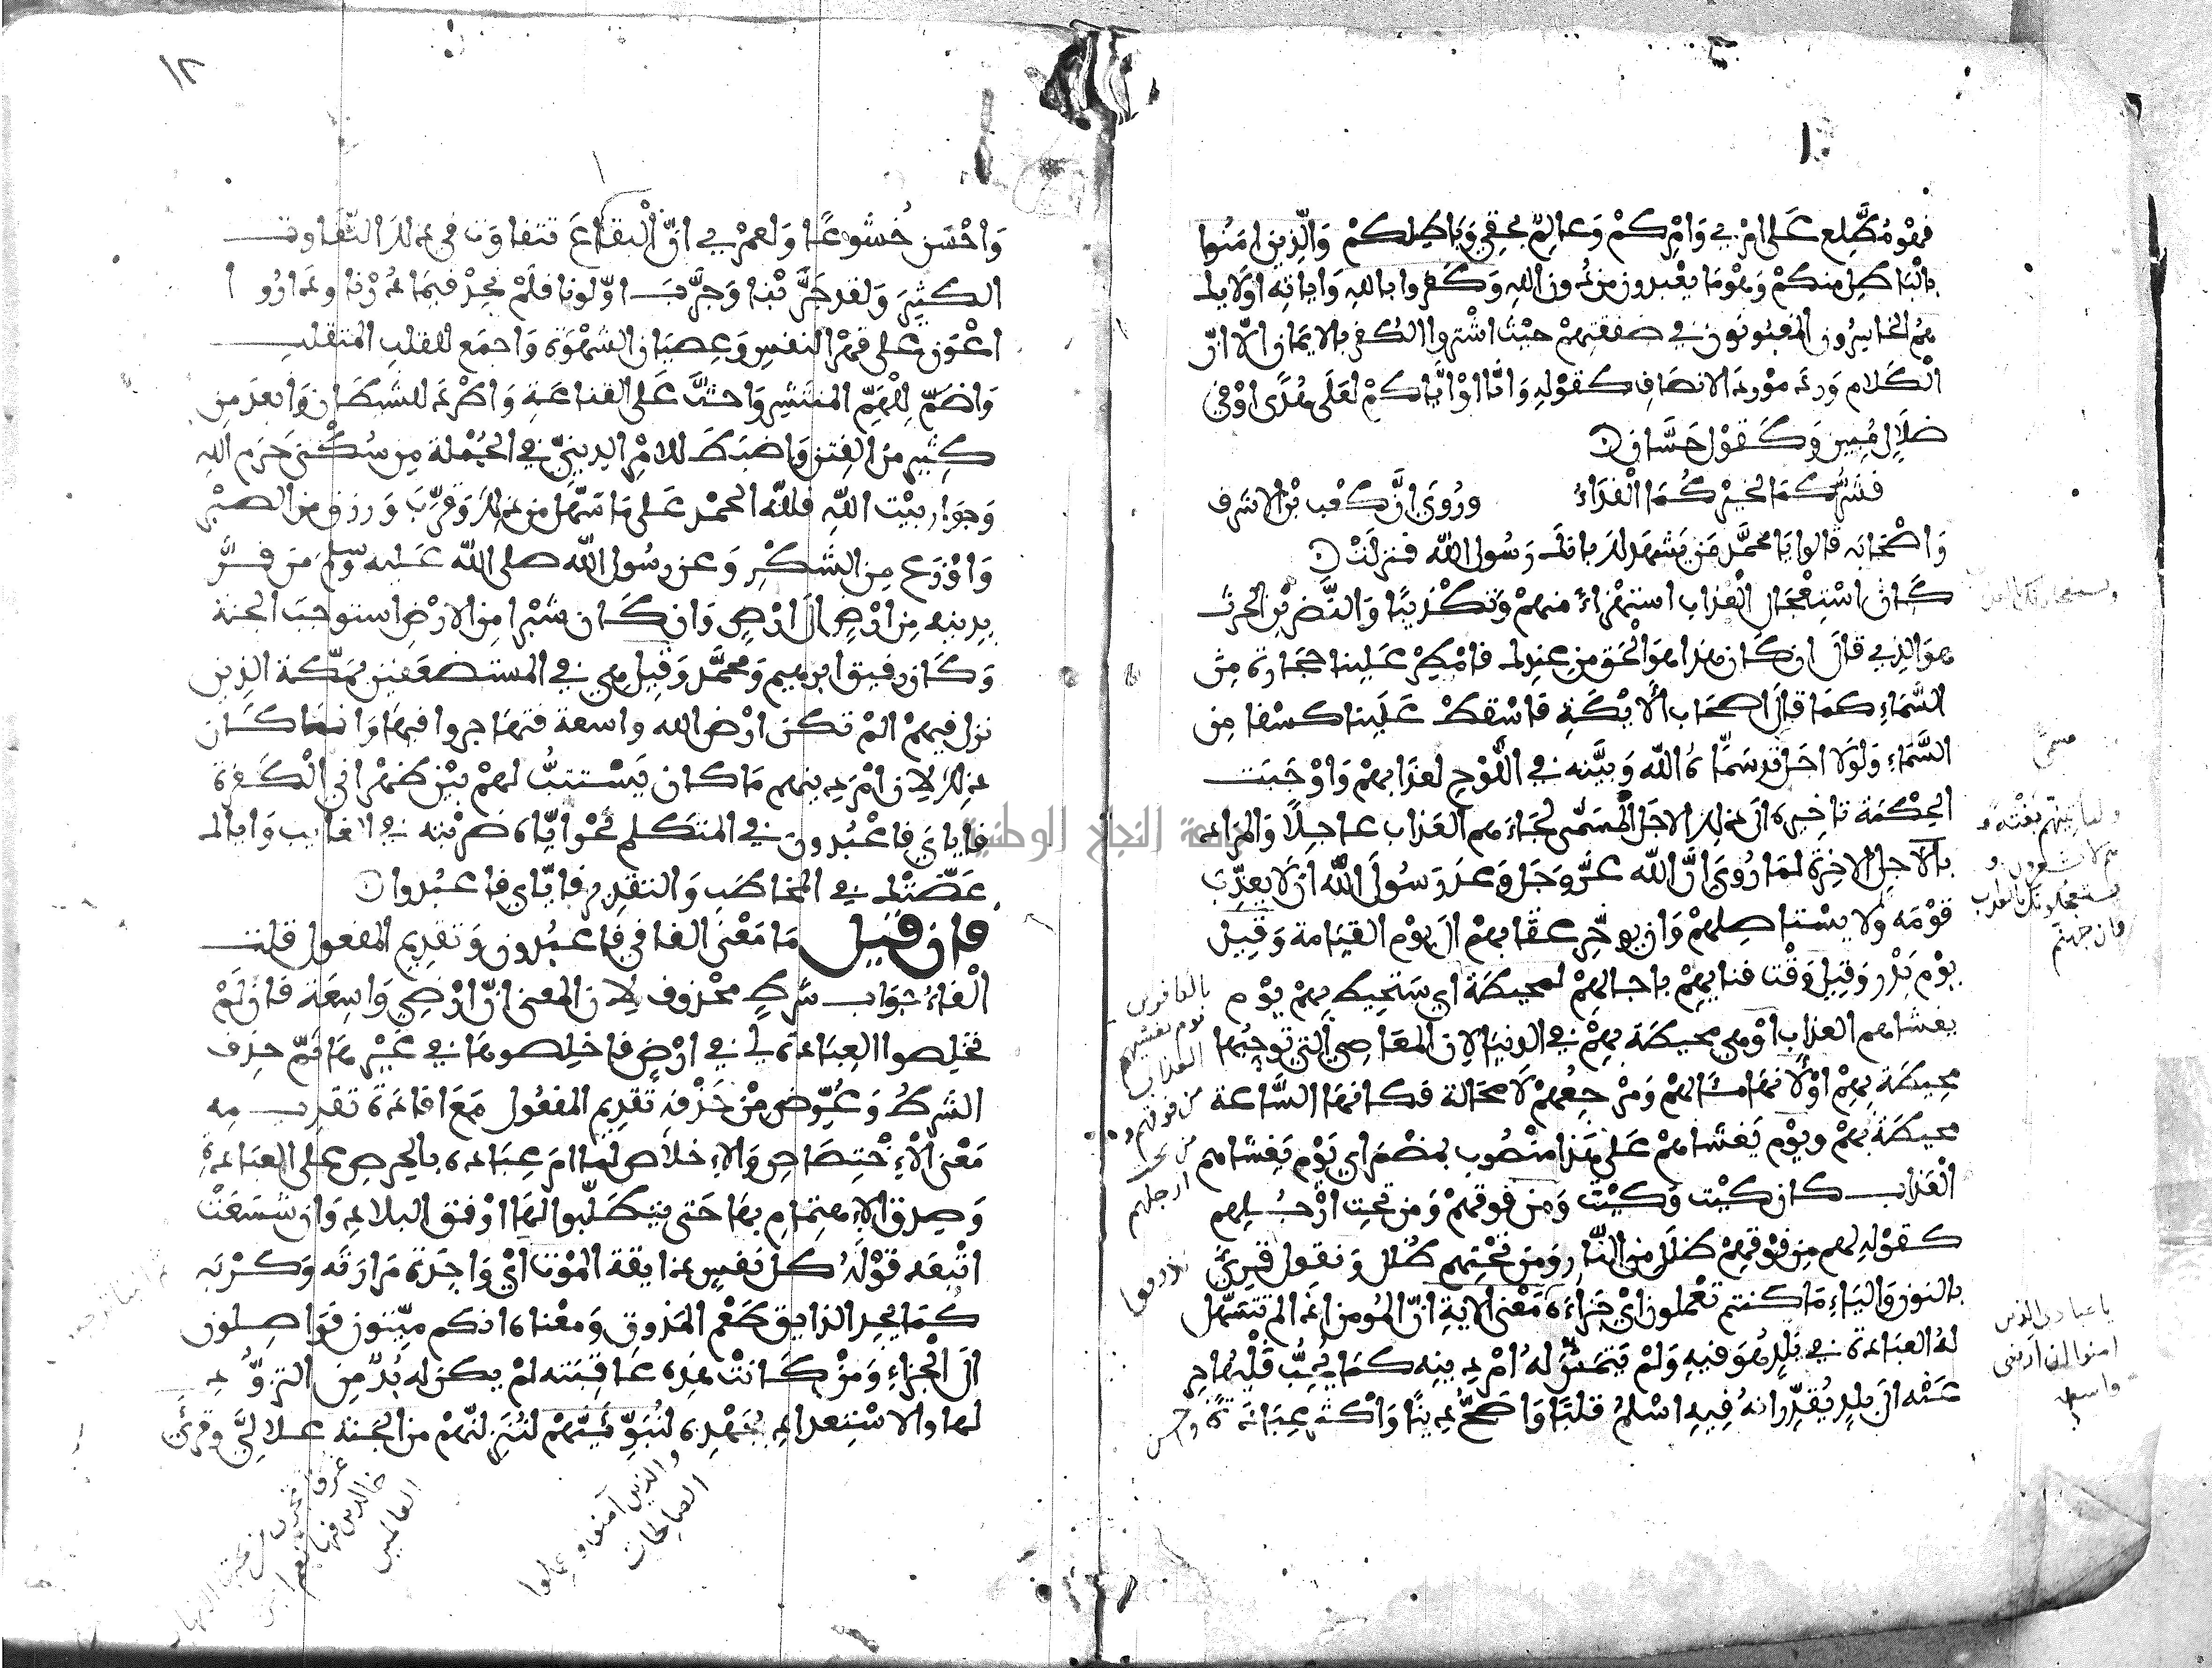 فهو مطلع على امري وامركم وعالم بحقي وباطلكم والذين امنوا
بالباطل منكم وهو ما يعبدون من دون الله وكفروا بالله واياته اولايك
هم الخاسرون المغبونون في صفقتهم حيث اشتروا الكفر بالايمان الا ان
الكلام ورد مورد الانصاف كقوله وانا او اياكم لعلى هدى او في
ضلال مبين وكقول حسان
فشركما لخيركما الفداء وروي ان كعب بن الاشرف
واصحابه قالوا يا محمد من يشهد لك بانك رسول الله فنزلت
كان استعجال العذاب استهزاء منهم وتكذيبا والنضر بن الحرث
هو الذي قال ان كان هذا هو الحق من عندك فامطر علينا حجارة من
السماء كما قال اصحاب الايكة فاسقط علينا كسفا من
السماء ولولا اجل قد سماه الله وبينه في اللوح لعذابهم واوجبت
الحكمة تاخيره الى ذلك الاجل المسمى لجاءهم العذاب عاجلا والمراد
بالاجل الاخرة لما روي ان الله عز وجل وعد رسول الله ان لا يعذب
قومه ولا يستاصلهم وان يوخر عقابهم الى يوم القيامة وقيل
يوم بدر وقيل وقت فنايهم باجالهم لمحيطة اي ستحيط بهم يوم
يغشاهم العذاب او هي محيطة بهم في الدنيا لان المعاصي التي توجبها
محيطة بهم او لانها مثالهم ومرجعهم لا محالة فكانها الساعة
محيطة بهم ويوم يغشاهم على هذا منصوب بمضمر اي يوم يغشاهم
العذاب كان كيت وكيت ومن فوقهم ومن تحت ارجلهم
كقوله لهم من فوقهم ظلل من النار ومن تحتهم ظلل ونقول قرئ
بالنون والياء ما كنتم تعملون اي جزاءه معنى الاية ان المومن اذا لم تتسهل
له العبادة في بلد هو فيه ولم يتمش له امر دينه كما يحب فليهاجر
عنه الى بلد يقدر انه فيه اسلم قلبا واصح دينا واكثر عبادة
واحسن
ويستعجلونك بالعذاب
مسمى
وليأتينهم بغتة و
هم لا يشعرون
يستعجلونك بالعذاب
وان جهنم
بالكافرين
يوم يغشيهم
العذاب
من فوقهم و
من تحت
ارجلهم
ذوقوا
يا عبادي الذين
امنوا ان ارضي
واسعة
١٢
واحسن خشوعا ولعمري ان البقاع تتفاوت في ذلك التفاوت
الكثير ولقد جربنا وجرب اولونا فلم نجد فيما درنا وداروا
اعون على قهر النفس وعصيان الشهوة واجمع للقلب المتقلب
واضم للهم المنتشر واحث على القناعة واطرد للشيطان وابعد من
كثير من الفتن واضبط للامر الديني في الجملة من سكنى حرم الله
وجوار بيت الله فلله الحمد على ما سهل من ذلك وقرب ورزق من الصبر
واوزع من الشكر وعن رسول الله صلى الله عليه وسلم من فر
بدينه من ارض الى ارض وان كان شبرا من الارض استوجب الجنة
وكان رفيق ابرهيم ومحمد وقيل هي في المستضعفين بمكة الذين
نزل فيهم الم تكن ارض الله واسعة فتهاجروا فيها وانما كان
ذلك لان امر دينهم ما كان يستتب لهم بين ظهراني الكفرة
فاياي فاعبدون في المتكلم نحو اياه ضربته في الغايب واياك
عضتك في المخاطب والتقدير فاياي فاعبدوا
فان قيل ما معنى الفا في فاعبدون وتقديم المفعول قلت
الفاء جواب شرط محذوف لان المعنى ان ارضي واسعة فان لم
تخلصوا العبادة لي في ارض فاخلصوها في غيرها ثم حذف
الشرط وعوض من حذفه تقديم المفعول مع افادة تقديمه
معنى الاختصاص والاخلاص لما امر عباده بالحرص على العبادة
وصدق الاهتمام بها حتى يتطلبوا لها اوفق البلاد وان شسعت
اتبعه قوله كل نفس ذايقة الموت اي واجدة مرارته وكربه
كما يجد الذايق طعم المذوق ومعناه انكم ميتون فواصلون
الى الجزاء ومن كانت هذه عاقبته لم يكن له بد من التزود
لها والاستعداد بجهده لنبوئنهم لننزلنهم من الجنة علالي وقرئ
والذين آمنوا وعملوا
الصالحات
غرفا تجري من تحتها الانهار
خالدين فيها نعم اجر
العاملين
جامعة النجاح الوطنية